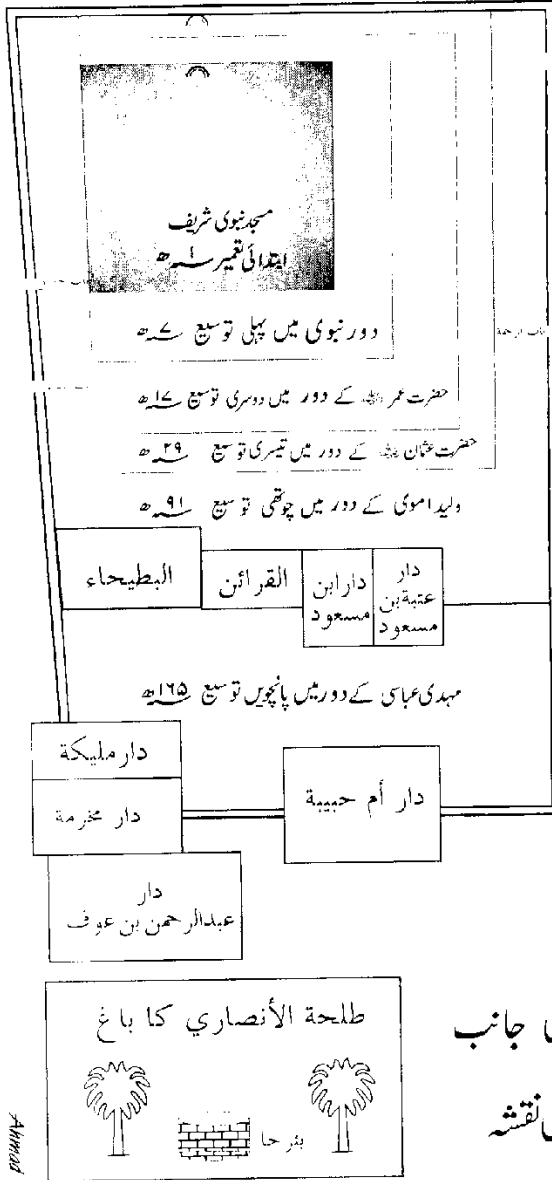 مسجد نبوی شریف
ابتدائی تعمیر ۱ھ
دور نبوی میں پہلی توسیع ۷ھ
باب الرحمة
حضرت عمر رضی اللہ عنہ کے دور میں دوسری توسیع ۱۷ھ
حضرت عثمان رضی اللہ عنہ کے دور میں تیسری توسیع ۲۹ھ
ولید اموی کے دور میں چوتھی توسیع ۹۱ھ
دار عتبة بن مسعود
دار ابن مسعود
القرائن
البطيحاء
مہدی عباسی کے دور میں پانچویں توسیع ۱۶۵ھ
دار مليكة
دار مخرمة
دار أم حبيبة
دار
عبدالرحمن بن عوف
طلحة الأنصاري کا باغ
بئر حا
جانب
نقشہ
Ahmad